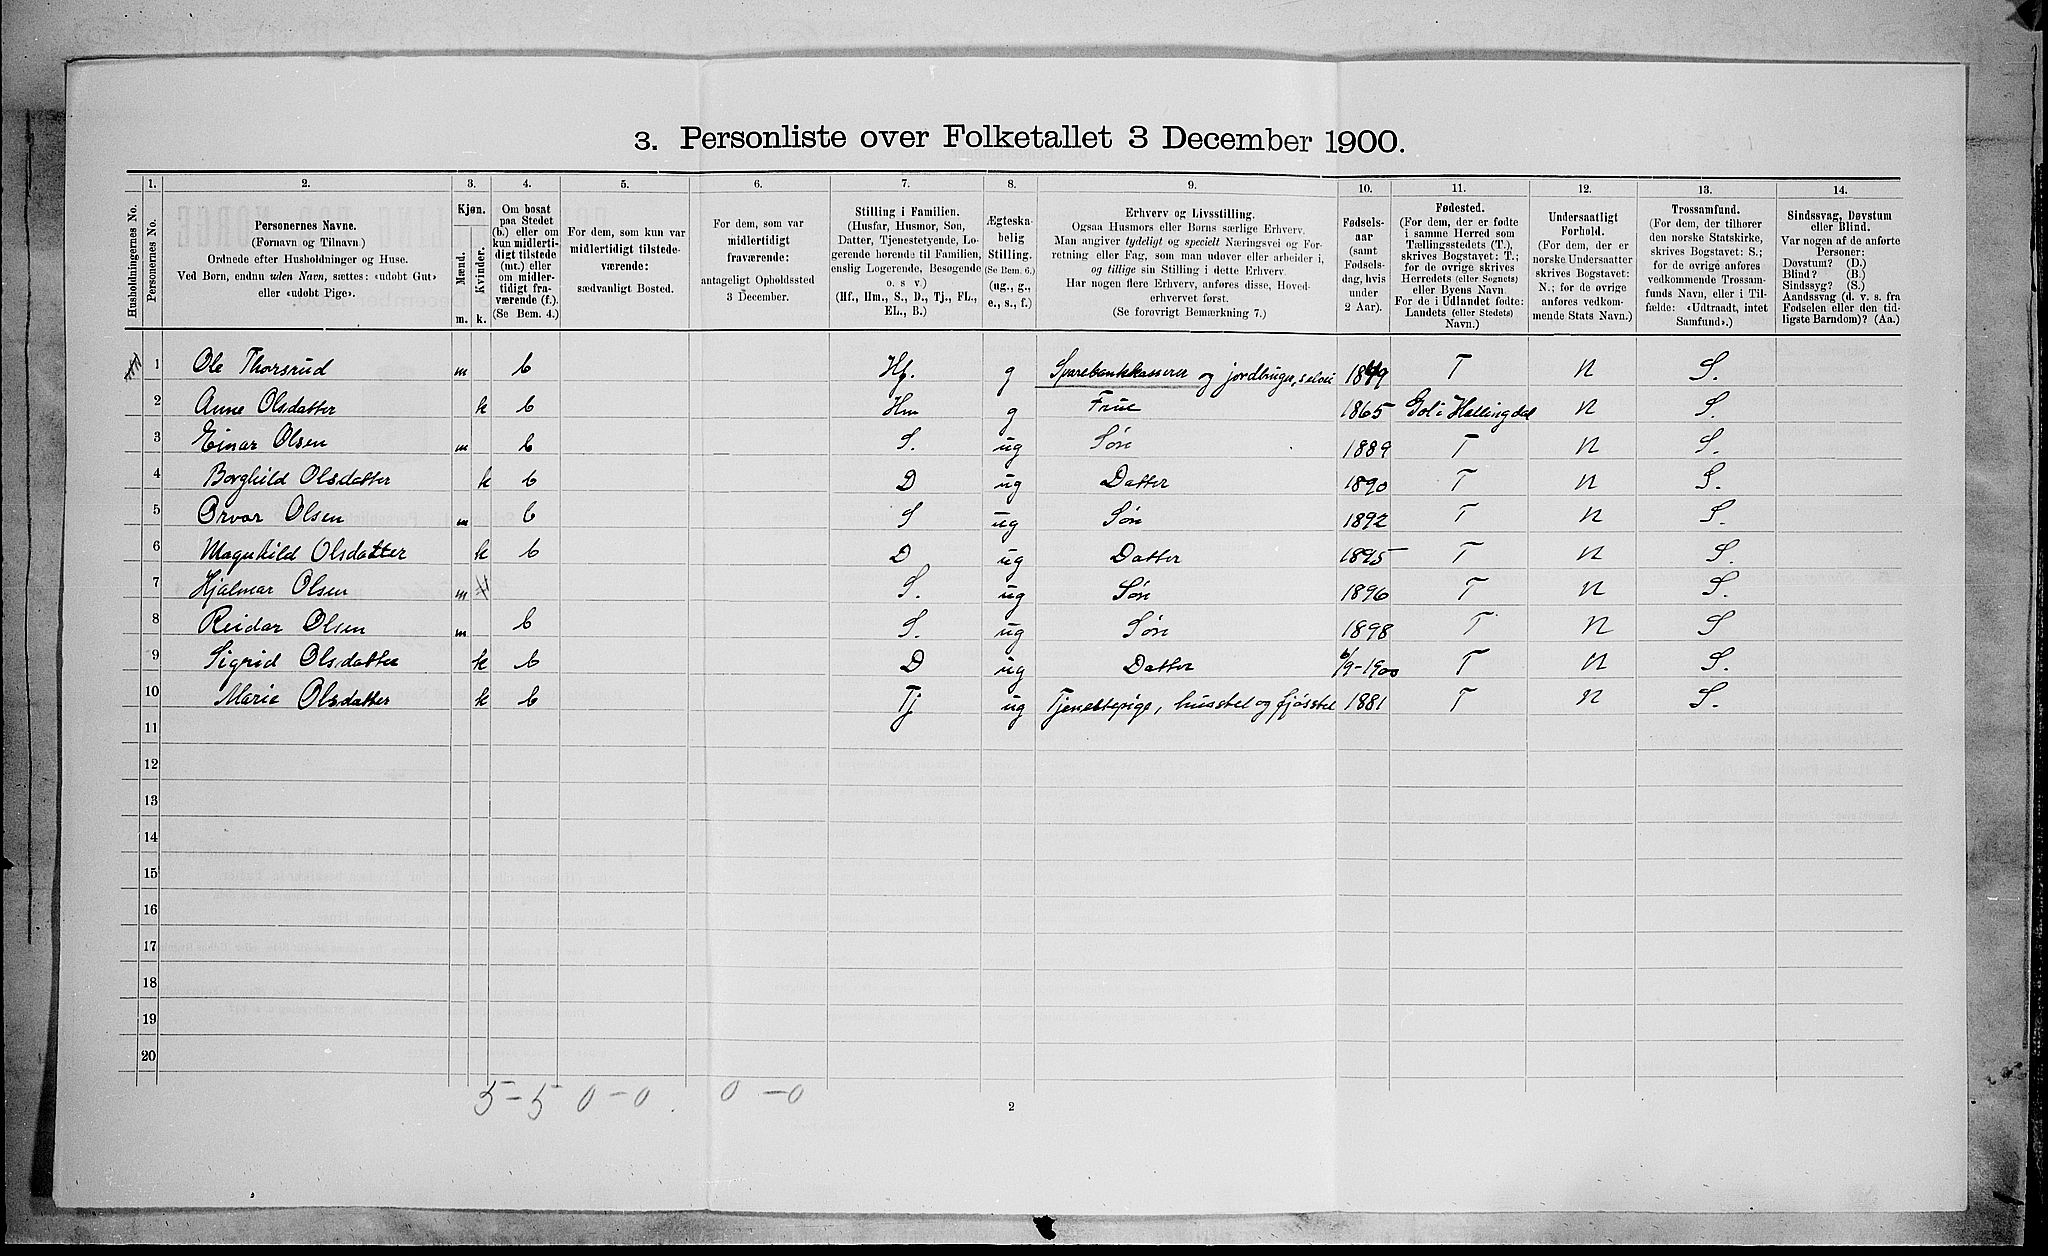 3. Personliste over Folketallet 3 December 1900.
1. 2. 3. 4. 5. 6. 7. 8. 9. 10. 11. 12. 13. 14.
Husholdningernes No.
Personernes No.
Personernes Navne.
(Fornavn og Tilnavn.)
Ordnede efter Husholdninger og Huse.
Ved Børn, endnu uden Navn, sættes: «udøbt Gut»
eller «udøbt Pige».
Kjøn.
Mænd.
Kvinder.
m. k.
Om bosat
paa Stedet
(b.) eller om
kun midlerti-
digt tilstede
(mt.) eller
om midler-
tidigt fra-
værende (f.).
(Se Bem. 4.)
For dem, som kun var
midlertidigt tilstede-
værende:
sædvanligt Bosted.
For dem, som var
midlertidigt
fraværende:
antageligt Opholdssted
3 December.
Stilling i Familien.
(Husfar, Husmor, Søn,
Datter, Tjenestetyende, Lo-
gerende hørende til Familien,
enslig Logerende, Besøgende
o. s v.)
(Hf., Hm., S., D., Tj., FL.,
EL., B.)
Ægteska-
belig
Stilling.
(Se Bem. 6.)
(ug., g.,
e., s., f.)
Erhverv og Livsstilling.
Ogsaa Husmors eller Børns særlige Erhverv.
Man angiver tydeligt og specielt Næringsvei og For-
retning eller Fag, som man udøver eller arbeider i,
og tillige sin Stilling i dette Erhverv.
Har nogen flere Erhverv, anføres disse, Hoved-
erhvervet først.
(Se forøvrigt Bemærkning 7.)
Fødsels-
aar
(samt
Fødsels-
dag, hvis
under
2 Aar).
Fødested.
(For dem, der er fødte
i samme Herred som
Tællingsstedets (T.),
skrives Bogstavet: T.;
for de øvrige skrives
Herredets (eller Sognets)
eller Byens Navn.
For de i Udlandet fødte:
Landets (eller Stedets)
Navn.)
Undersaatligt
Forhold.
(For dem, der er
norske Undersaatter
skrives Bogstavet:
N.; for de øvrige
anføres vedkom-
mende Stats Navn.)
Trossamfund.
(For dem, der tilhører
den norske Statskirke,
skrives Bogstavet: S.;
for de øvrige anføres
vedkommende Trossam-
funds Navn, eller i Til-
fælde: «Udtraadt, intet
Samfund».)
Sindssvag, Døvstum
eller Blind.
Var nogen af de anførte
Personer:
Døvstum? (D.)
Blind? (B.)
Sindssyg? (S.)
Aandssvag (d. v. s. fra
Fødselen eller den tid-
ligste Barndom)? (Aa.)
1 Ole Thorsrud m b Hf. g Sparebankkasserer og jordbruger, selveier 1849 T N S.
2 Anne Olsdatter k b Hm g Frue 1865 Gol i Hallingdal N S.
3 Einar Olsen m b S. ug Søn 1889 T N S.
4 Borghild Olsdatter k b D ug Datter 1890 T N S.
5 Orvar Olsen m b S ug Søn 1892 T N S.
6 Magnhild Olsdatter k b D ug Datter 1895 T N S.
7 Hjalmar Olsen m S. ug Søn 1896 T N S.
8 Reidar Olsen m b S. ug Søn 1898 T N S
9 Sigrid Olsdatter k b D ug Datter 6/9-1900 T N S.
10 Marie Olsdatter k b Tj ug Tjenestepige, husstel og fjøsstel 1881 T N S.
11
12
13
14
15
16
17
18
19
20
5 - 5 0 - 0. 0 - 0
2